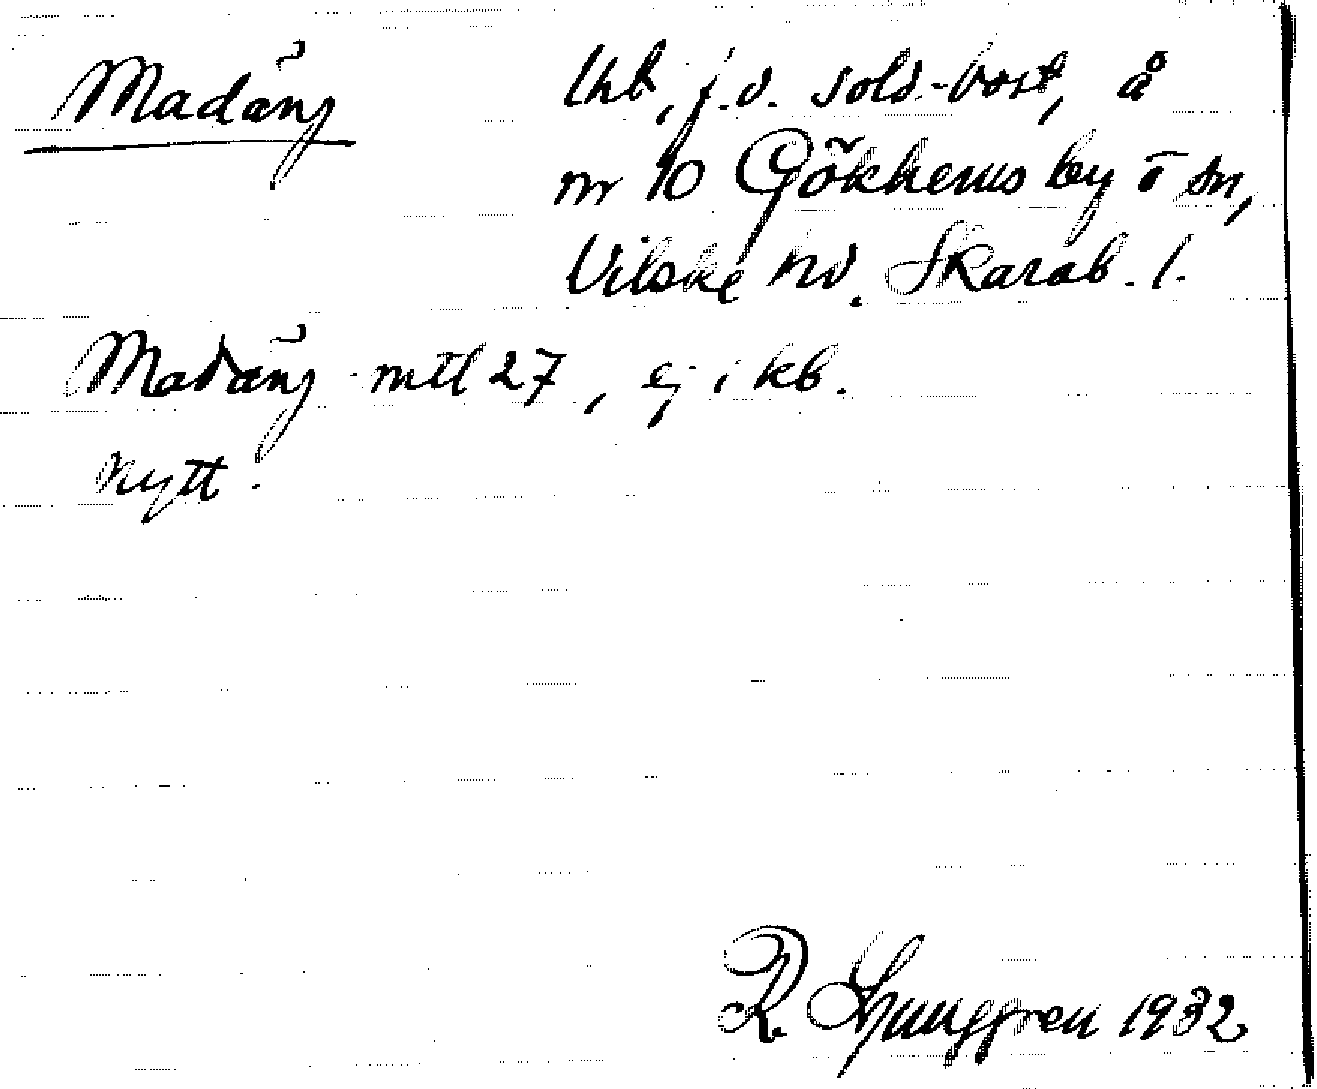 Madäng
lhb, f.d. sold.-bost, å
nr 10 Gökhems by i sn,
Vilske hd. Skarab. l.
Madäng mtl 27, ej i kb.
Nytt.
R. Ljunggren 1932